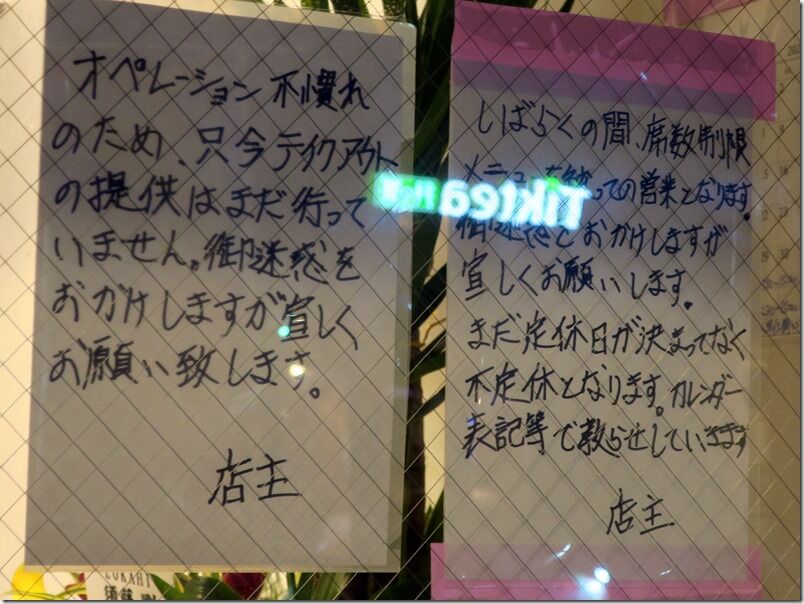 オペレーション不慣れ
のため、只今テイクアウト
の提供はまだ行って
いません。御迷惑を
おかけしますが宜しく
お願い致します。
店主
しばらくの間、席数制限
メニューを絞っての営業となります。
御迷惑をおかけしますが
宜しくお願いします。
まだ定休日が決まってなく
不定休となります。カレンダー
表記等で教らせしていきます
店主
Tiktea
LUKAHI